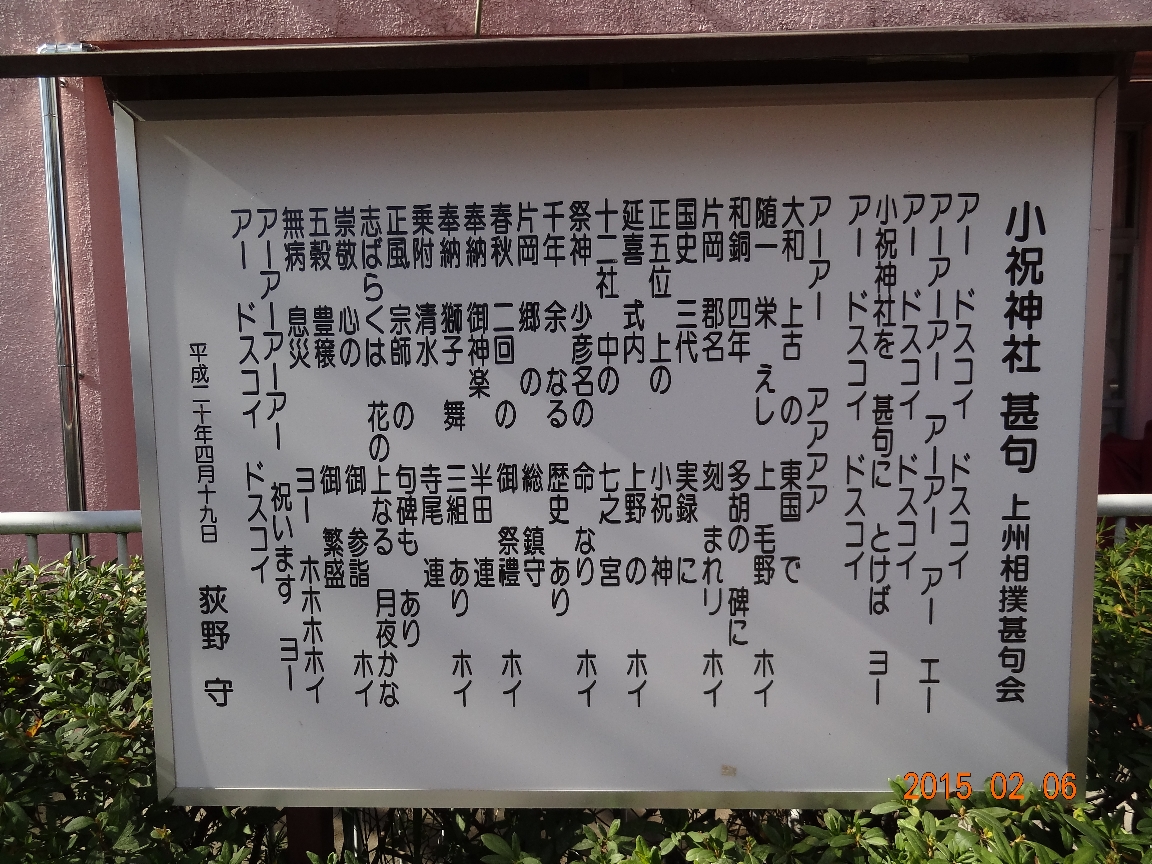 小祝神社 甚句 上州相撲甚句会
アー ドスコイ ドスコイ
アーアーアー アーアー アー エー
アー ドスコイ ドスコイ
小祝神社を 甚句に とけば ヨー
アー ドスコイ ドスコイ
アーアー アアアア
大和 上古 の 東国 で
随一 栄 えし 上 毛野 ホイ
和銅 四年 多胡の 碑に
片岡 郡名 刻 まれり ホイ
国史 三代 実録 に
正五位 上の 小祝 神
延喜 式内 上野 の ホイ
十二社 中の 七之 宮
祭神 少彦名の 命 なり ホイ
千年 余 なる 歴史 あり
片岡 郷 の 総 鎮守
春秋 二回 の 御 祭禮 ホイ
奉納 御神楽 半田 連
奉納 獅子 舞 三組 あり ホイ
乗附 清水 寺尾 連
正風 宗師 の 句碑も あり
志ばらくは 花の 上なる 月夜かな
崇敬 心の 御 参詣 ホイ
五穀 豊穣 御 繁盛
無病 息災 ヨー ホホホホイ
アーアーアーアー 祝います ヨー
アー ドスコイ ドスコイ
平成二十年四月十九日 荻野 守
2015 02 06